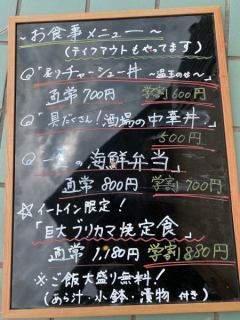 ～お食事メニュー～
(テイクアウトもやってます)
◎「炙りチャーシュー丼 ～温玉のせ～」
通常700円 学割600円
◎「具だくさん!酒場の中華丼」
500円
の海鮮弁当」
通常 800円 学割700円
☆イートイン限定!
「巨大ブリカマ焼定食」
通常 1,180円 学割 880円
※ご飯大盛り無料!
(あら汁・小鉢・漬物 付き)